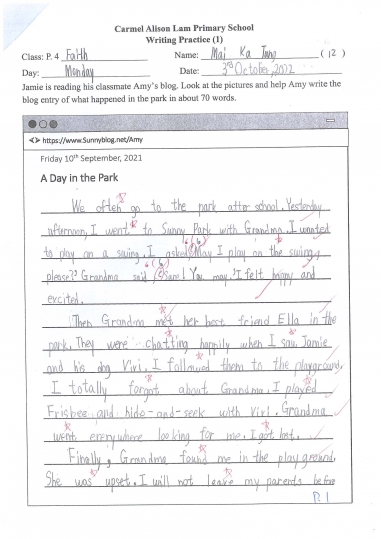 Carmel Alison Lam Primary School
Writing Practice (1)
Class: P. 4 Faith Name: Mai Ka (12)
Day: Monday Date: 3rd October, 2022
Jamie is reading his classmate Amy's blog. Look at the pictures and help Amy write the
blog entry of what happened in the park in about 70 words.
https://www.Sunnyblog.net/Amy
Friday 10th September, 2021
A Day in the Park
We often go to the park after school. Yesterday
afternoon, I went to Sunny Park with Grandma. I wanted
to play on a swing. I asked "May I play on the swing,
please?" Grandma said "Sure! You may." I felt happy and
excited.
Then Grandma met her best friend Ella in the
park. They were chatting happily when I saw Jamie
and his dog Vivi. I followed them to the playground.
I totally forgot about Grandma. I played
Frisbee and hide-and-seek with Vivi. Grandma
went everywhere looking for me. I got hot.
Finally, Grandma found me in the playground.
She was upset. I will not leave my parents before
P.1